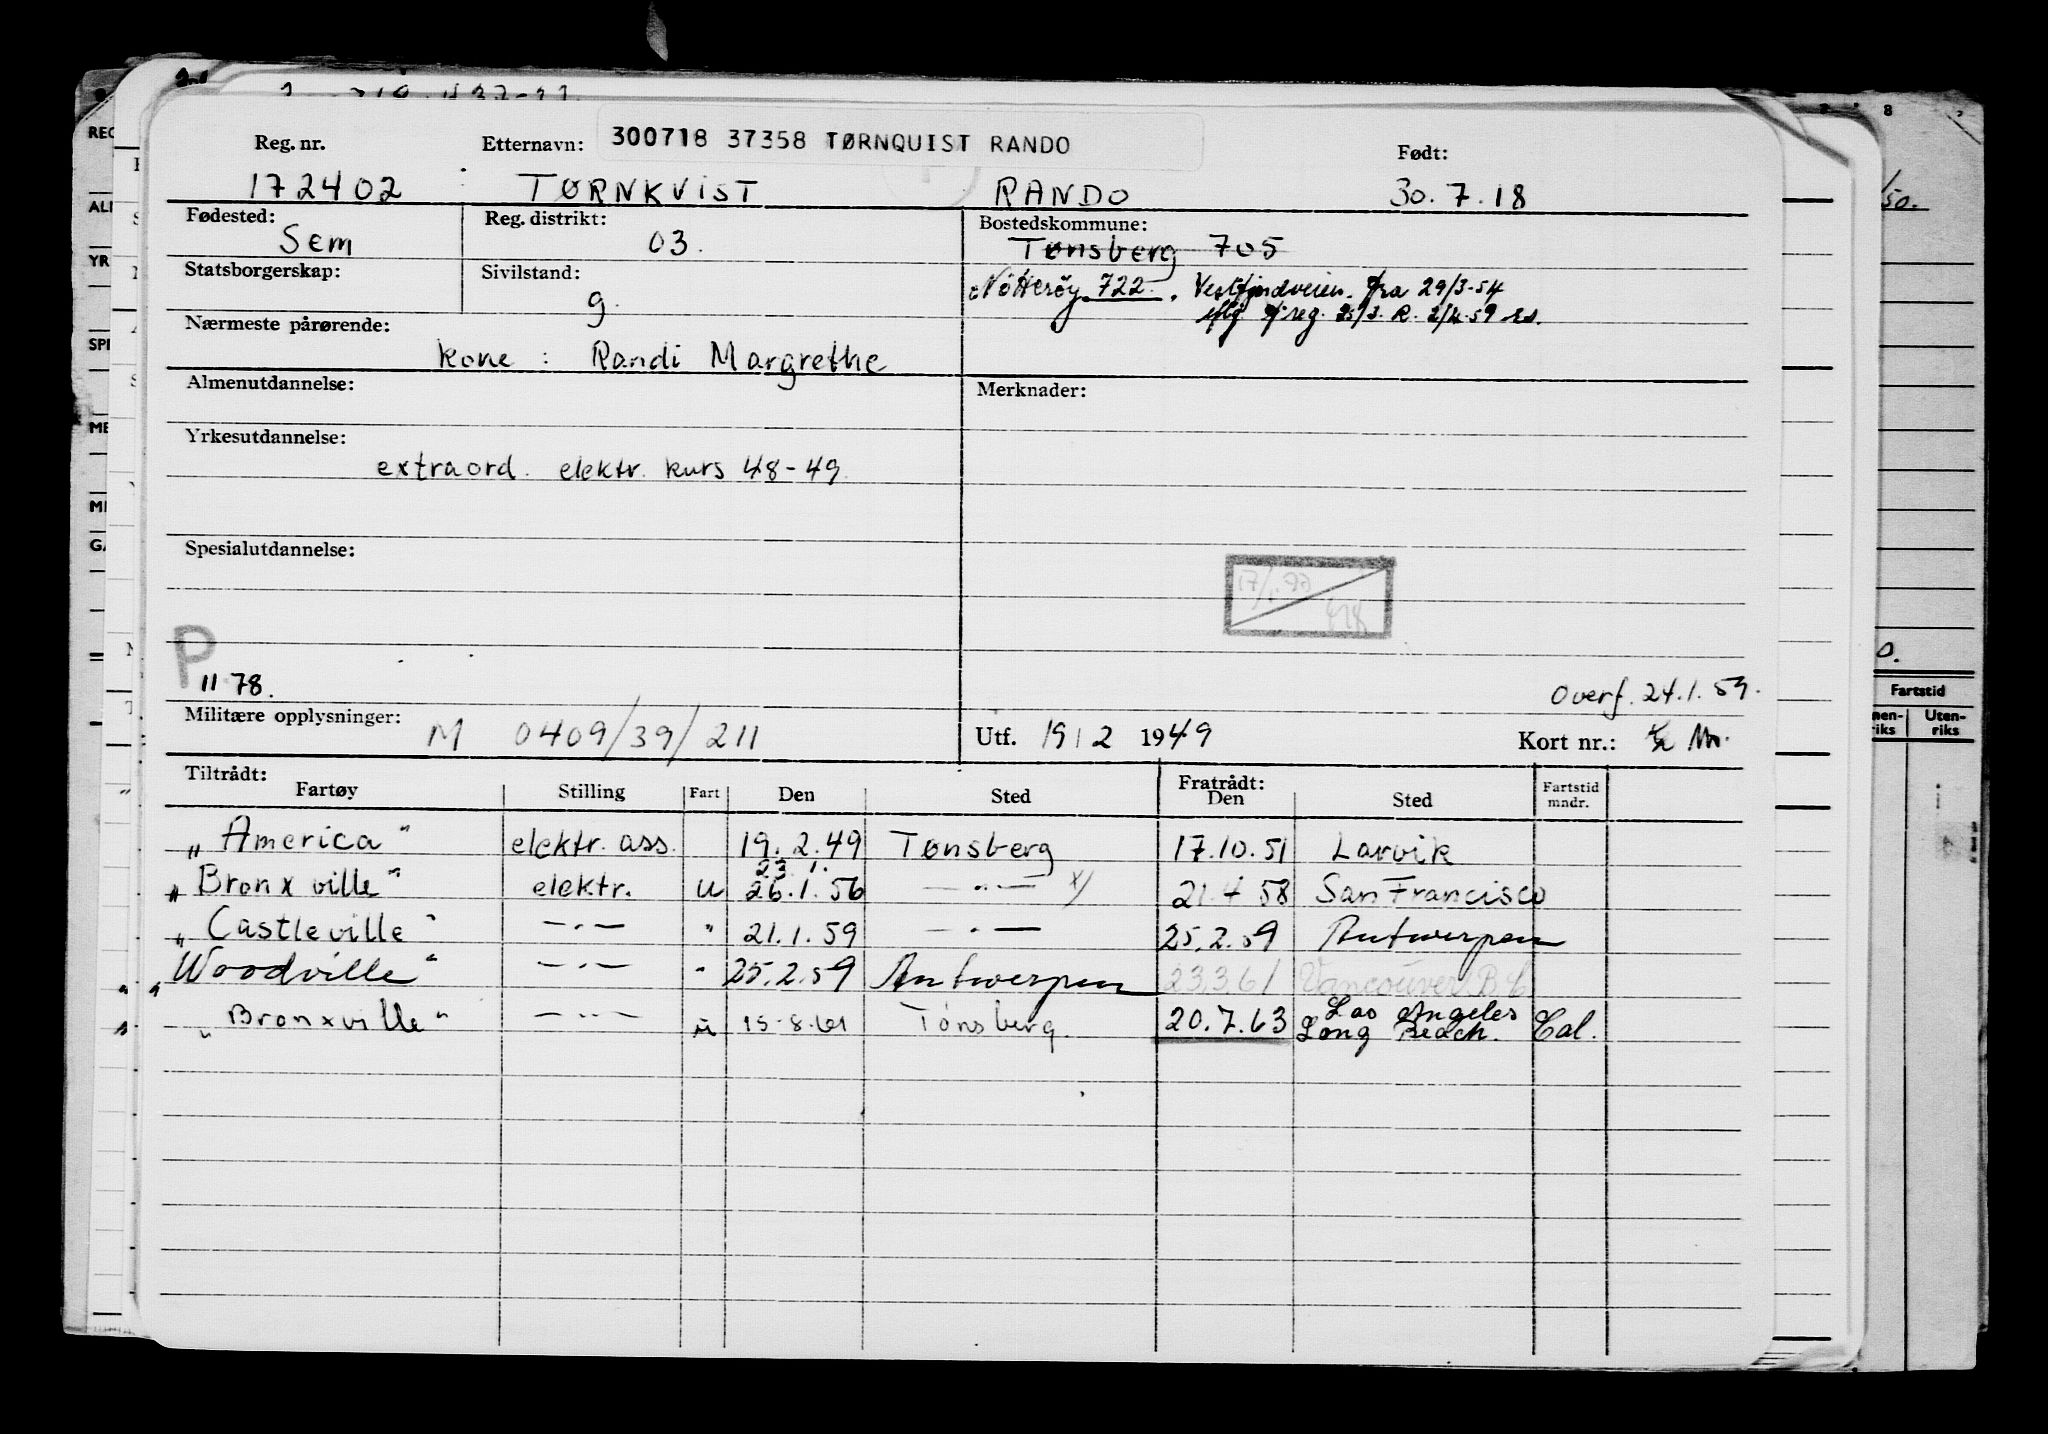 Reg. nr. Etternavn: 300718 37358 TØRNQUIST RANDO Født:
172402 TØRNKVIST RANDO 30.7.18
Fødested: Reg. distrikt: Bostedskommune:
Sem 03. Tønsberg 705
Statsborgerskap: Sivilstand: Nøtterøy 722. Vestfjordveien. fra 29/3-54
g. iflg. reg. 25/3. R. 2/4-59
Nærmeste pårørende:
kone : Randi Margrethe
Almenutdannelse: Merknader:
Yrkesutdannelse:
extraord. elektr. kurs 48-49
Spesialutdannelse:
P
11 78.
Overf. 24.1.59.
Militære opplysninger: M 0409/39/211 Utf. 19/2 1949 Kort nr.:
Tiltrådt: Fratrådt:
Fartøy Stilling Fart Den Sted Den Sted Fartstid mndr.
„America" elektr. ass. 19.2.49 Tønsberg 17.10.51 Larvik
23.1.
„Bronxville" elektr. U 26.1.56 —"— x) 21.4 58 San Francisco
„Castleville" —"— " 21.1.59 —"— 25.2.59 Antwerpen
„Woodville" —"— " 25.2.59 Antwerpen 23.3.61 Vancouver B.C.
„Bronxville" —"— 15-8.61 Tønsberg. 20.7.63 Los Angeles
Long Beach. Cal.
Fartstid
Uten-
riks